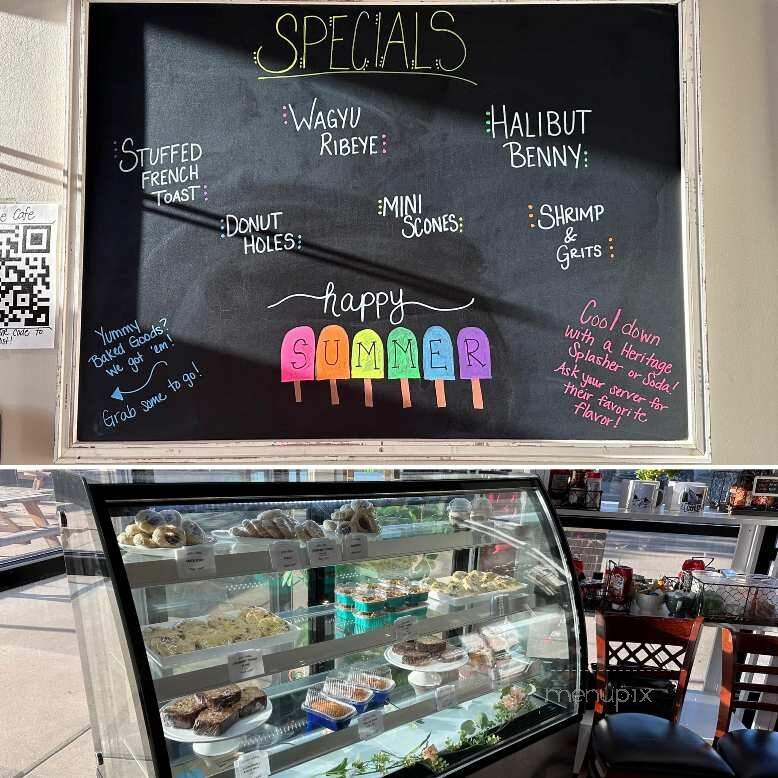 SPECIALS
WAGYU
RIBEYE
HALIBUT
BENNY
STUFFED
FRENCH
TOAST
DONUT
HOLES
MINI
SCONES
SHRIMP
&
GRITS
happy
SUMMER
Yummy
Baked Goods?
We got 'em!
Grab some to go!
Cool down
with a Heritage
Splasher or Soda!
Ask your server for
their favorite
flavor!
Cafe
Code to
menupix